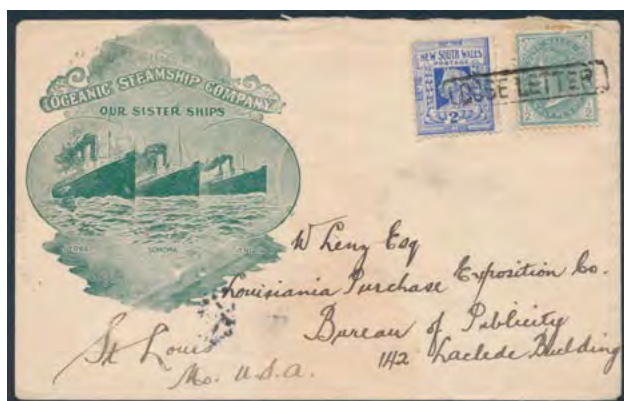 OCEANIC STEAMSHIP COMPANY
OUR SISTER SHIPS
SIERRA SONOMA VENTURA
NEW SOUTH WALES
POSTAGE
2
LOOSE LETTER
1/2 1/2
W Lenz Esq
Louisiania Purchase Exposition Co.
Bureau of Publicity
142 Laclede Building
St Louis
Mo. U.S.A.